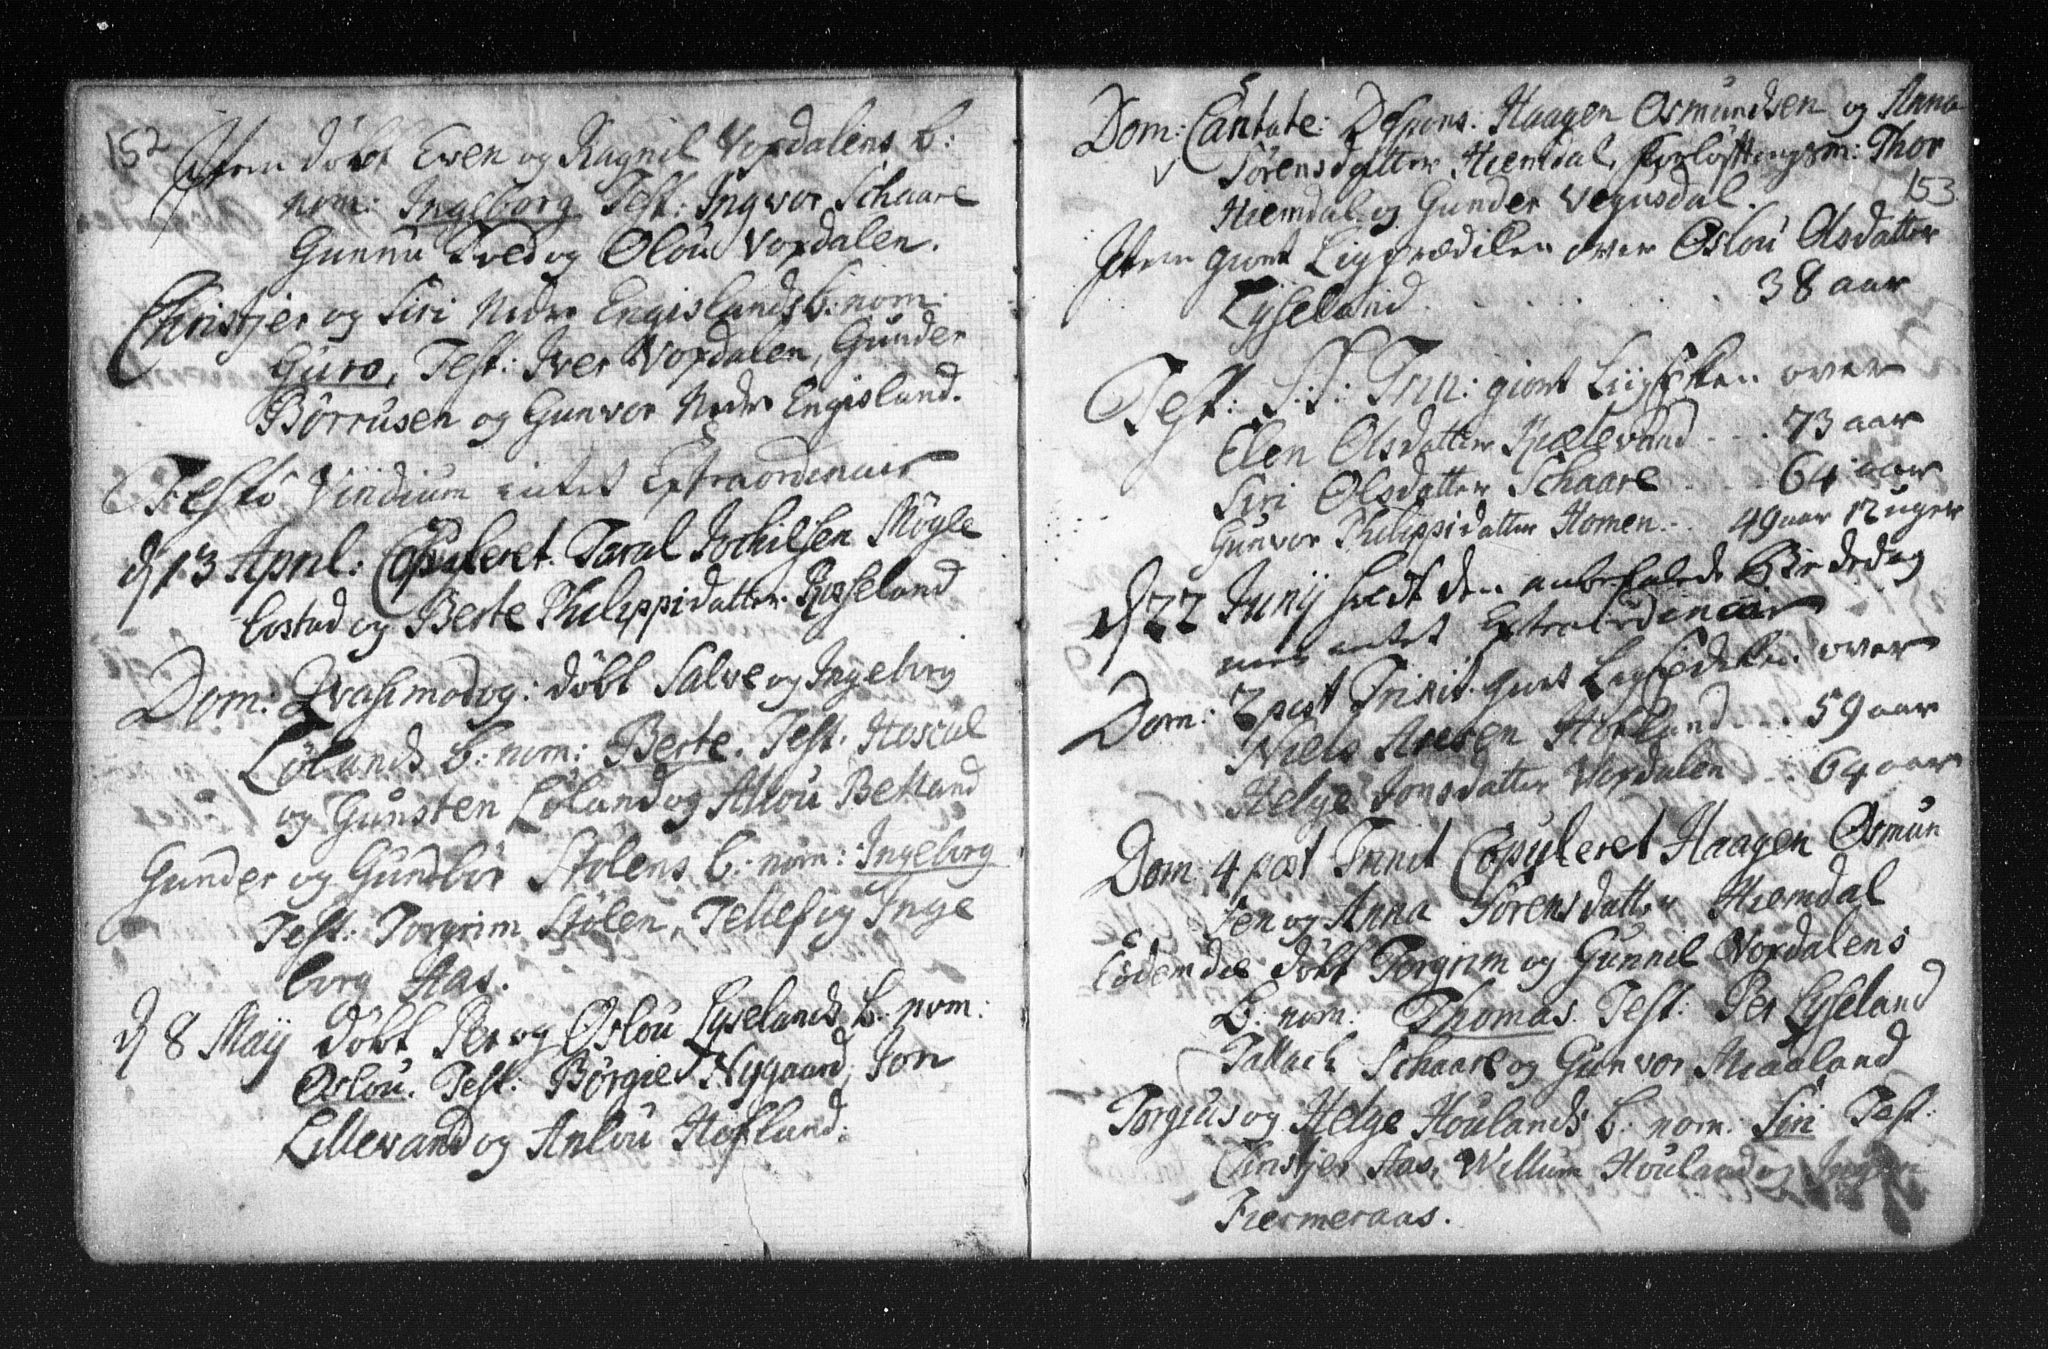 152
Item døbt Even og Ragnil Voxdalens b:
nom: Ingeborg Test: Ingvor Schaare
Gunnu Tved og Olou Voxdalen.
Christjer og Siri Nedre Engislands b: nom:
Guro, Test: Iver Voxdalen, Gunder
Børrusen og Gunvor Nedre Engisland.
Festo Viridium intet Extraordinair
d 13 April: Copuleret Taral Kochilsen Møgle
bostad og Berte Philippidatter Risseland
Dom: Qvasimodog: døbt Salve og Ingeborg
Lølands b: nom: Berte. Test. Hoscul
og Gunsten Løland og Allou Betland
Gunder og Gundbor Stølens b: nom: Ingeborg
Test: Torgrim Stølen, Tellef og Inge
borg Aas.
d 8 Maij døbt Per og Oslou Lyselands b. nom:
Oslou. Test: Børgie Nygaard, Jon
Lillevand og Anlou Hefland.
Dom: Cantate: Despons: Haagen Osmundsen og Anna
Sørensdatter Hiemdal, forløftningsm: Thor
153
Hiemdal og Gunder Vegusdal.
Item giort Ligprædiken over Oslou Olsdatter
Lyseland . . . . . . 38 aar
Fest: S. S: Trin: giort Liigpken over
Elen Olsdatter Kiætevand . . . 73 aar
Siri Olsdatter Schaare . . . 64 aar
Gunvor Philippidatter Homen . . 49 aar 12 uger
d 22 Junij holdt den anbefalede Bededag
men intet Extraordinair
Dom: 2 post Trinit. giort Ligprædiken over
Niels Aresen Hobland . . . 59 aar
Helge Jonsdatter Voxdalen . . 64 aar
Dom 4 post Trinit Copuleret Haagen Osmun
sen og Anna Sørensdatter Hiemdal
Eodem die døbt Torgrim og Gunnil Voxdalens
b: nom: Thomas. Test: Per Lyseland
Tallach Schaare og Gunvor Miaaland
Torgius og Helge Houlands b. nom. Siri Test:
Cristjer Aas, Willum Houland og
Fiermeraas.